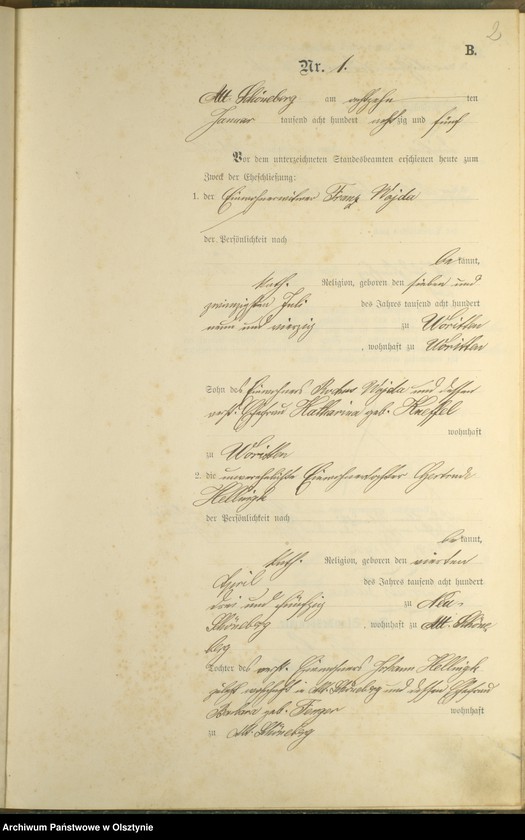 2
B.
Nr. 1.
Alt Schöneberg am achtzehn ten
Januar tausend acht hundert achtzig und fünf
Vor dem unterzeichneten Standesbeamten erschienen heute zum
Zweck der Eheschließung:
1. der Einwohnerwitwer Franz Wojda
der Persönlichkeit nach
be kannt,
kath. Religion, geboren den sieben und
zwanzigsten Juli des Jahres tausend acht hundert
neun und vierzig zu Woritten
, wohnhaft zu Woritten
Sohn des Einwohners Wojda und dessen
verst. Ehefrau Katharina geb. Kneffel
wohnhaft
zu Woritten
2. die unverehelichte Einwohnertochter Gertrude
Hellingk
der Persönlichkeit nach
be kannt,
kath. Religion, geboren den vierten
April des Jahres tausend acht hundert
drei und fünfzig zu Neu-
Schöneberg , wohnhaft zu Alt-Schöne
berg
Tochter des verst. Einwohners Johann Hellingk
zuletzt wohnhaft in Alt-Schöneberg und dessen Ehefrau
Barbara geb. wohnhaft
zu Alt-Schöneberg
Archiwum Państwowe w Olsztynie